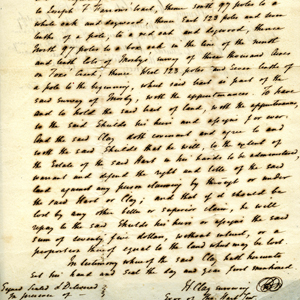 to Joseph T. Farrow's land, thence south 97 poles to a
oak and dogwood, thence East 123 poles and seven
tenths of a pole, to a red oak and dogwood, thence
North 97 poles to a box oak in the line of the tenth
and tenth lots of Mosby's survey of three thousand Acres
on Toxis Creek; thence West 123 poles and seven tenths of
a pole to the beginning, which said land is part of the
said survey of Mosby, with the appurtenances. To have
and to hold the said part of land, with the appurtenances
to the said Shields his heirs and assigns for ever.
And the said Clay doth covenant and agree to and
with the said Shields that he will, to the extent of
the Estate of the said Hart in his hands to be administered
warrant and defend the right and title of the said
land against any person claiming by through or under
the said Hart or Clay; and that if it should be
lost by any other better or superior claim, he will
repay to the said Shields his heirs or assigns the said
sum of seventy five shillings, without interest, or a
proportion thereof equal to the land which may be lost.
In testimony whereof the said Clay hath hereunto
set his hand and seal the day and year first mentioned.
Signed Sealed & Delivered
in presence of
H. Clay surviving
Exor of Tho. Hart